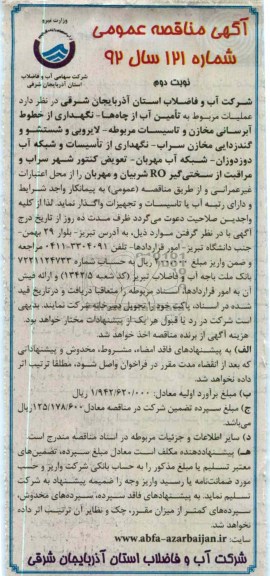 وزارت نیرو
شرکت سهامی آب و فاضلاب
استان آذربایجان شرقی
آگهی مناقصه عمومی
شماره ۱۲۱ سال ۹۲
نوبت دوم
شرکت آب و فاضلاب استان آذربایجان شرقی در نظر دارد
عملیات مربوط به تأمین آب از چاه‌ها - نگهداری از خطوط
آبرسانی مخازن و تاسیسات مربوطه - لایروبی و شستشو و
گندزدایی مخازن سراب - نگهداری از تأسیسات و شبکه آب
دوزدوزان - شبکه آب مهربان - تعویض کنتور شهر سراب و
مراقبت از سختی‌گیر RO شربیان و مهربان را از محل اعتبارات
غیرعمرانی و از طریق مناقصه (عمومی) به پیمانکار واجد شرایط
و دارای رتبه آب یا تاسیسات و تجهیزات واگذار نماید. لذا از کلیه
واجدین صلاحیت دعوت می‌گردد ظرف مدت ده روز از تاریخ درج
آگهی با در نظر گرفتن موارد ذیل، به آدرس تبریز- بلوار ۲۹ بهمن-
جنب دانشگاه تبریز- امور قراردادها- تلفن ۳۳۰۴۰۹۱-۰۴۱۱ مراجعه
و ضمن واریز مبلغ ریال به حساب شماره ۷۲۲۱۱۲۴۷۳۳
بانک ملت باجه آب و فاضلاب تبریز (کد شعبه ۱۳۴۴/۵) و ارائه فیش
آن به امور قراردادها، اسناد مربوطه را متعاقبا دریافت و در تاریخ قید
شده در اسناد، پاکت خود را تحویل دبیرخانه شرکت نمایند. بدیهی
است شرکت در رد یا قبول هر یک از پیشنهادات مختار خواهد بود.
هزینه آگهی از برنده مناقصه اخذ خواهد شد.
الف) به پیشنهادهای فاقد امضاء، مشروط، مخدوش و پیشنهاداتی
که بعد از انقضاء مدت مقرر در فراخوان واصل شود، مطلقا ترتیب اثر
داده نخواهد شد.
ب) مبلغ برآورد اولیه معادل: ۱/۹۴۲/۶۲۰/۰۰۰ ریال
ج) مبلغ سپرده تضمین شرکت در مناقصه معادل ۱۲۵/۱۷۸/۶۰۰ ریال
می‌باشد.
د) سایر اطلاعات و جزئیات مربوطه در اسناد مناقصه مندرج است.
هـ) پیشنهاددهنده مکلف است معادل مبلغ سپرده، تضمین‌های
معتبر تسلیم یا مبلغ مذکور را به حساب بانکی شرکت واریز و حسب
مورد ضمانت‌نامه یا رسید واریز وجه را ضمیمه پیشنهاد به شرکت
تسلیم نماید. به پیشنهادهای فاقد سپرده، سپرده‌های مخدوش،
سپرده‌های کمتر از میزان مقرر، چک و نظایر آن ترتیب اثر داده
نخواهد شد.
سایت: www.abfa-azarbaijan.ir
شرکت آب و فاضلاب استان آذربایجان شرقی